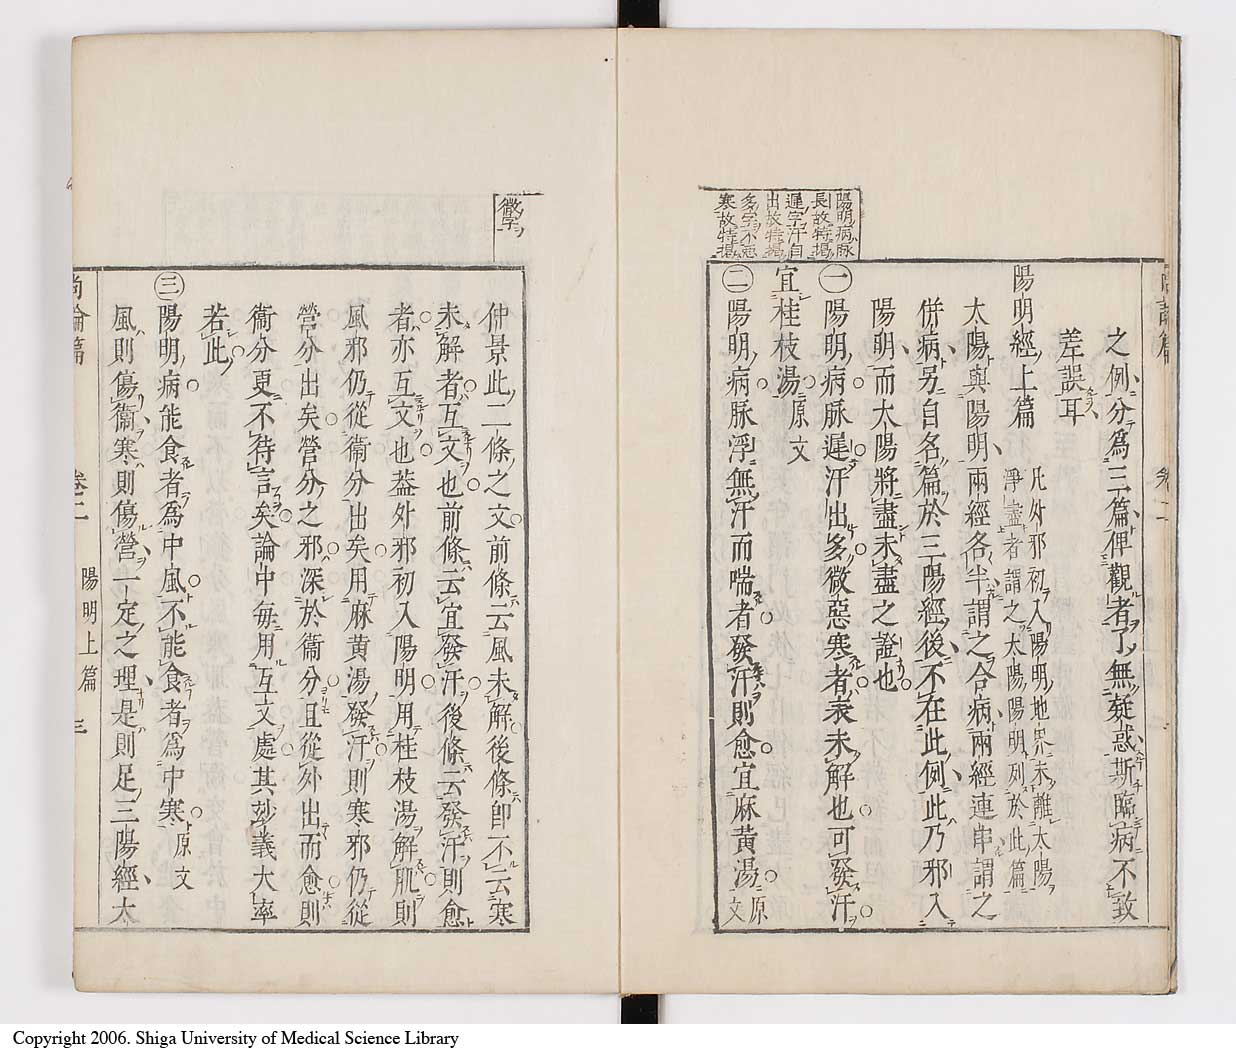 之例分爲三篇俾觀者了無疑惑斯臨病不致
差誤耳
陽明經上篇
凡外邪初入陽明地界未離太陽
淨盡者謂之太陽陽明列於此篇
太陽與陽明兩經各半謂之合病兩經連串謂之
併病另自名篇於三陽經後不在此例此乃邪入
陽明而太陽將盡未盡之證也
一 陽明病脉遲汗出多微惡寒者表未解也可發汗
宜桂枝湯 原文
二 陽明病脉浮無汗而喘者發汗則愈宜麻黄湯 原文
陽明病脉
長故特揭
遲字汗自
出故特揭
多字不惡
寒故特揭
微字
仲景此二條之文前條云風未解後條即不云寒
未解者互文也前條云宜發汗後條云發汗則愈
者亦互文也葢外邪初入陽明用桂枝湯解肌則
風邪仍從衞分出矣用麻黄湯發汗則寒邪仍從
營分出矣營分之邪深於衞分且從外出而愈則
衞分更不待言矣論中毎用互文處其玅義大率
若此
三 陽明病能食者爲中風不能食者爲中寒 原文
風則傷衞寒則傷營一定之理是則足三陽經太
尚論篇 卷二 陽明上篇 三